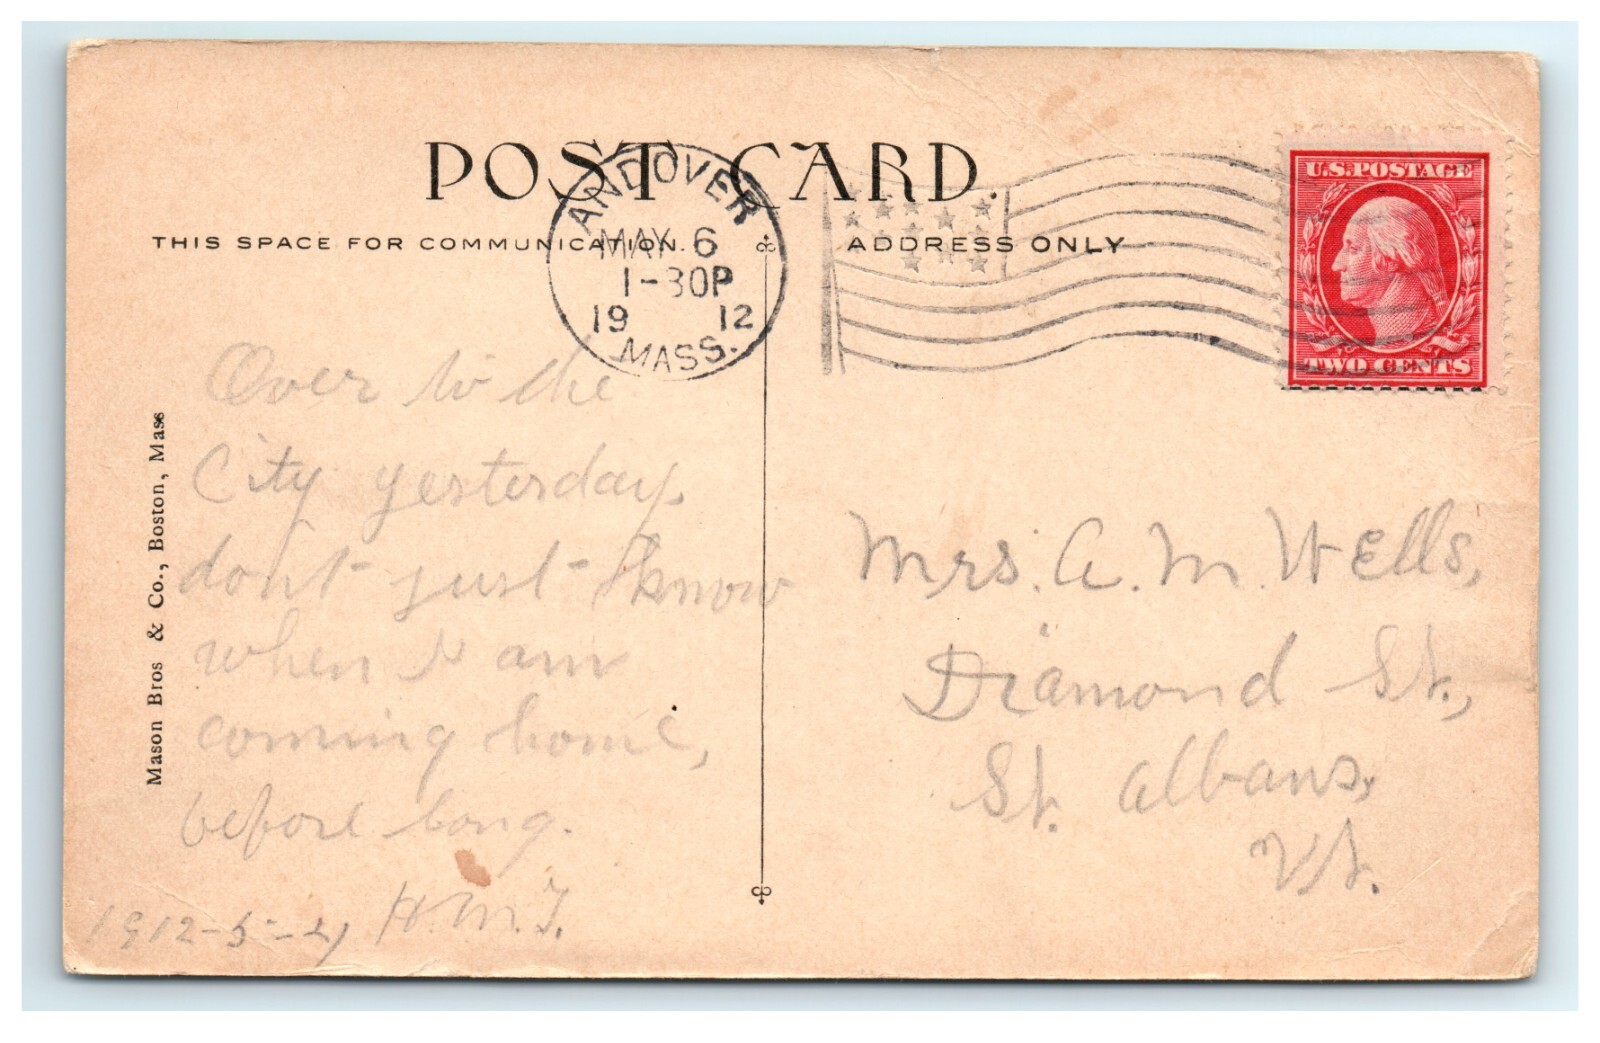 POST CARD.
THIS SPACE FOR COMMUNICATION.
ADDRESS ONLY
ANDOVER
MAY 6
1-30P
19 12
MASS.
U.S. POSTAGE
TWO CENTS
Mason Bros & Co., Boston, Mass
Over to the
City yesterday,
don't just know
when I am
coming home,
before long.
H.M.T.
1912-5-
Mrs. A. M. Wells,
Diamond St.,
St. Albans,
Vt.